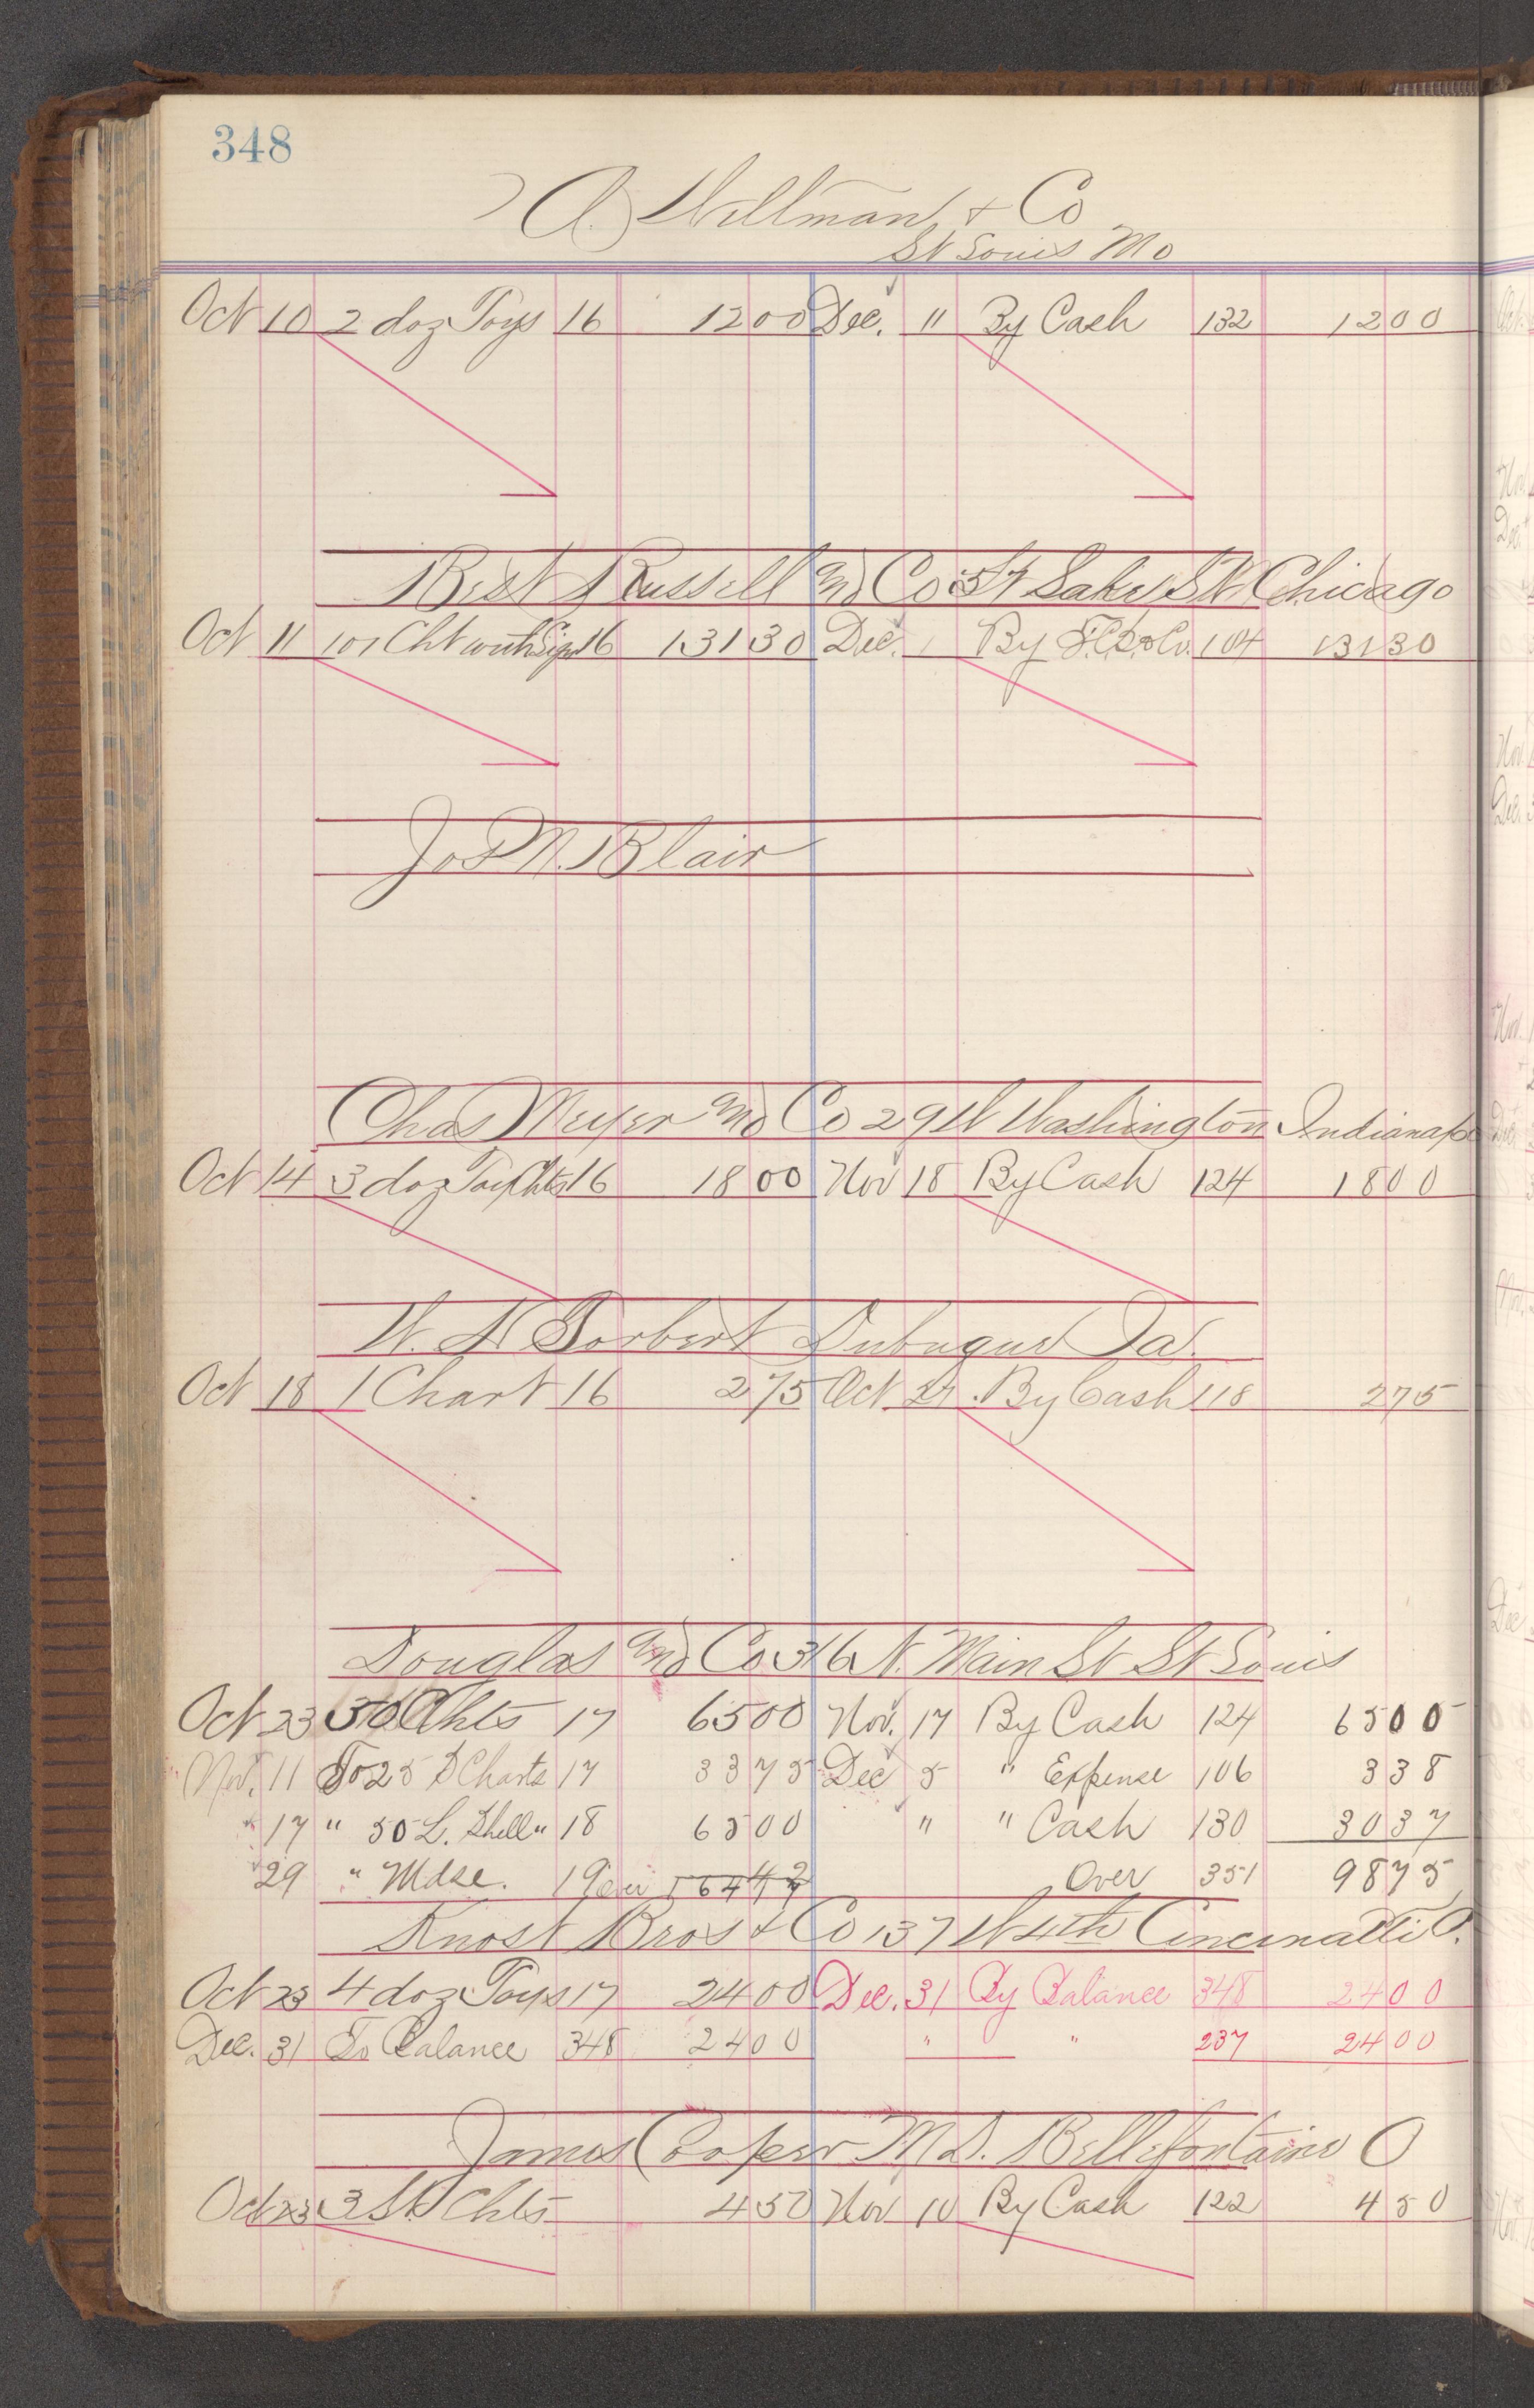 348
A. Wellman & Co
St Louis Mo
Oct 10 2 doz Toys 16 12 00 Dec. " By Cash 132 12 00
Best Russell and Co 57 Lake St Chicago
Oct 11 101 Cht with Sign 16 131 30 Dec. 1 By 104 131 30
Jos N. Blair
Chas Meyer and Co 29 W Washington Indianap
Oct 14 3 doz Toy Chts 16 18 00 Nov 18 By Cash 124 18 00
W. H Torbert Dubuque Ia.
Oct 18 1 Chart 16 2 75 Oct 27 By Cash 118 2 75
Douglas and Co 316 N. Main St St Louis
Oct 23 50 Chts 17 65 00 Nov. 17 By Cash 124 65 00
Nov. 11 To 25 D Charts 17 33 75 Dec 5 " Expense 106 3 38
" 17 " 50 L. Shell " 18 65 00 " " Cash 130 30 37
" 29 " Mdse. 19 Over 351 98 75
Knost Bros & Co 137 W 4th Cincinatti O.
Oct 23 4 doz Toys 17 24 00 Dec. 31 By Balance 348 24 00
Dec. 31 To Balance 348 24 00 " " 237 24 00
James Cooper M.D. Bellefontaine O
Oct 23 3 St. Chts 4 50 Nov 10 By Cash 122 4 50